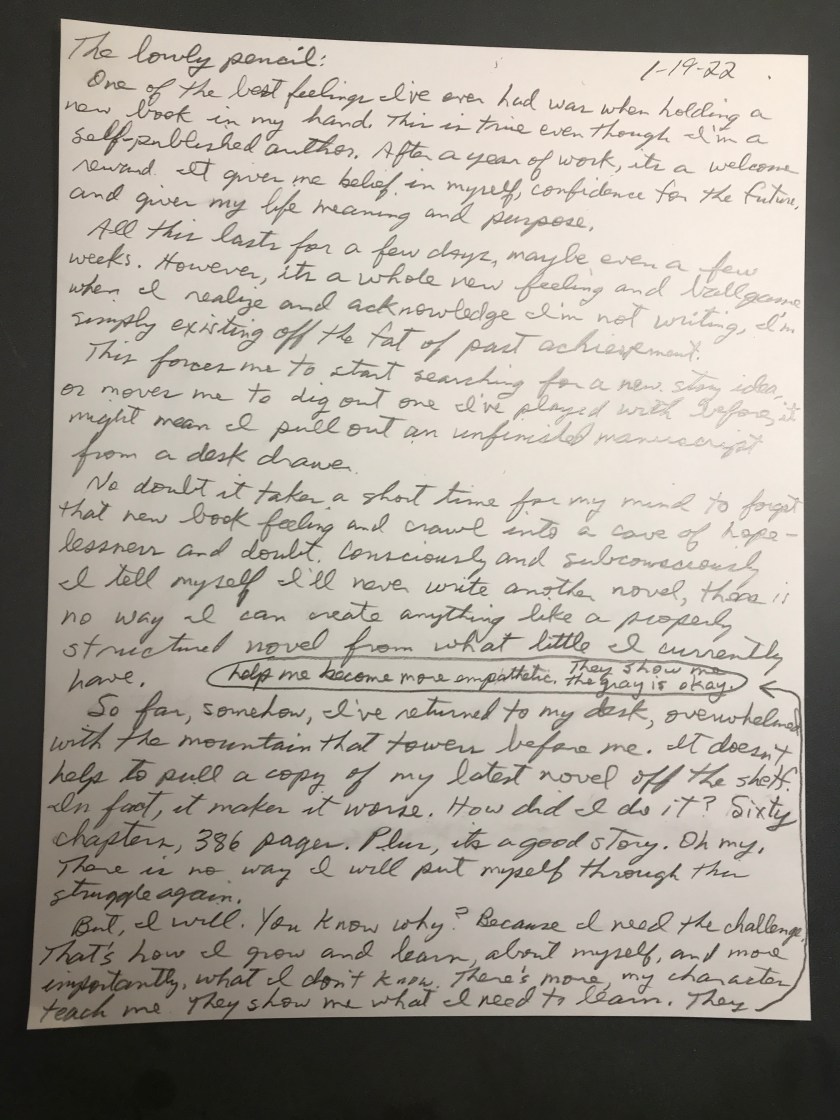 The lowly pencil:
1-19-22
One of the best feelings I've ever had was when holding a
new book in my hand. This is true even though I'm a
self-published author. After a year of work, its a welcome
reward. It gives me belief in myself, confidence for the future,
and gives my life meaning and purpose.
All this lasts for a few days, maybe even a few
weeks. However, its a whole new feeling and ballgame
when I realize and acknowledge I'm not writing, I'm
simply existing off the fat of past achievement.
This forces me to start searching for a new story idea,
or moves me to dig out one I've played with before, it
might mean I pull out an unfinished manuscript
from a desk drawer.
No doubt it takes a short time for my mind to forget
that new book feeling and crawl into a cave of hope-
lessness and doubt. Consciously and subconsciously
I tell myself I'll never write another novel, there is
no way I can create anything like a properly
structured novel from what little I currently
have.
So far, somehow, I've returned to my desk, overwhelmed
with the mountain that towers before me. It doesn't
help to pull a copy of my latest novel off the shelf.
In fact, it makes it worse. How did I do it? Sixty
chapters, 386 pages. Plus, its a good story. Oh my.
There is no way I will put myself through this
struggle again.
But, I will. You know why? Because I need the challenge.
That's how I grow and learn, about myself, and more
importantly, what I don't know. There's more, my characters
teach me. They show me what I need to learn. They
help me become more empathetic. They show me
the gray is okay.